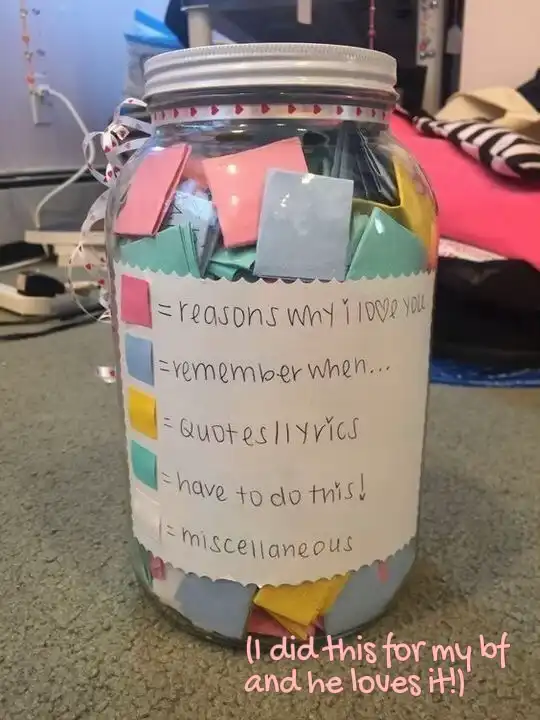 = reasons why i lo♡e you
= remember when...
= Quotes/lyrics
= have to do this!
= miscellaneous
(I did this for my bf
and he loves it!)